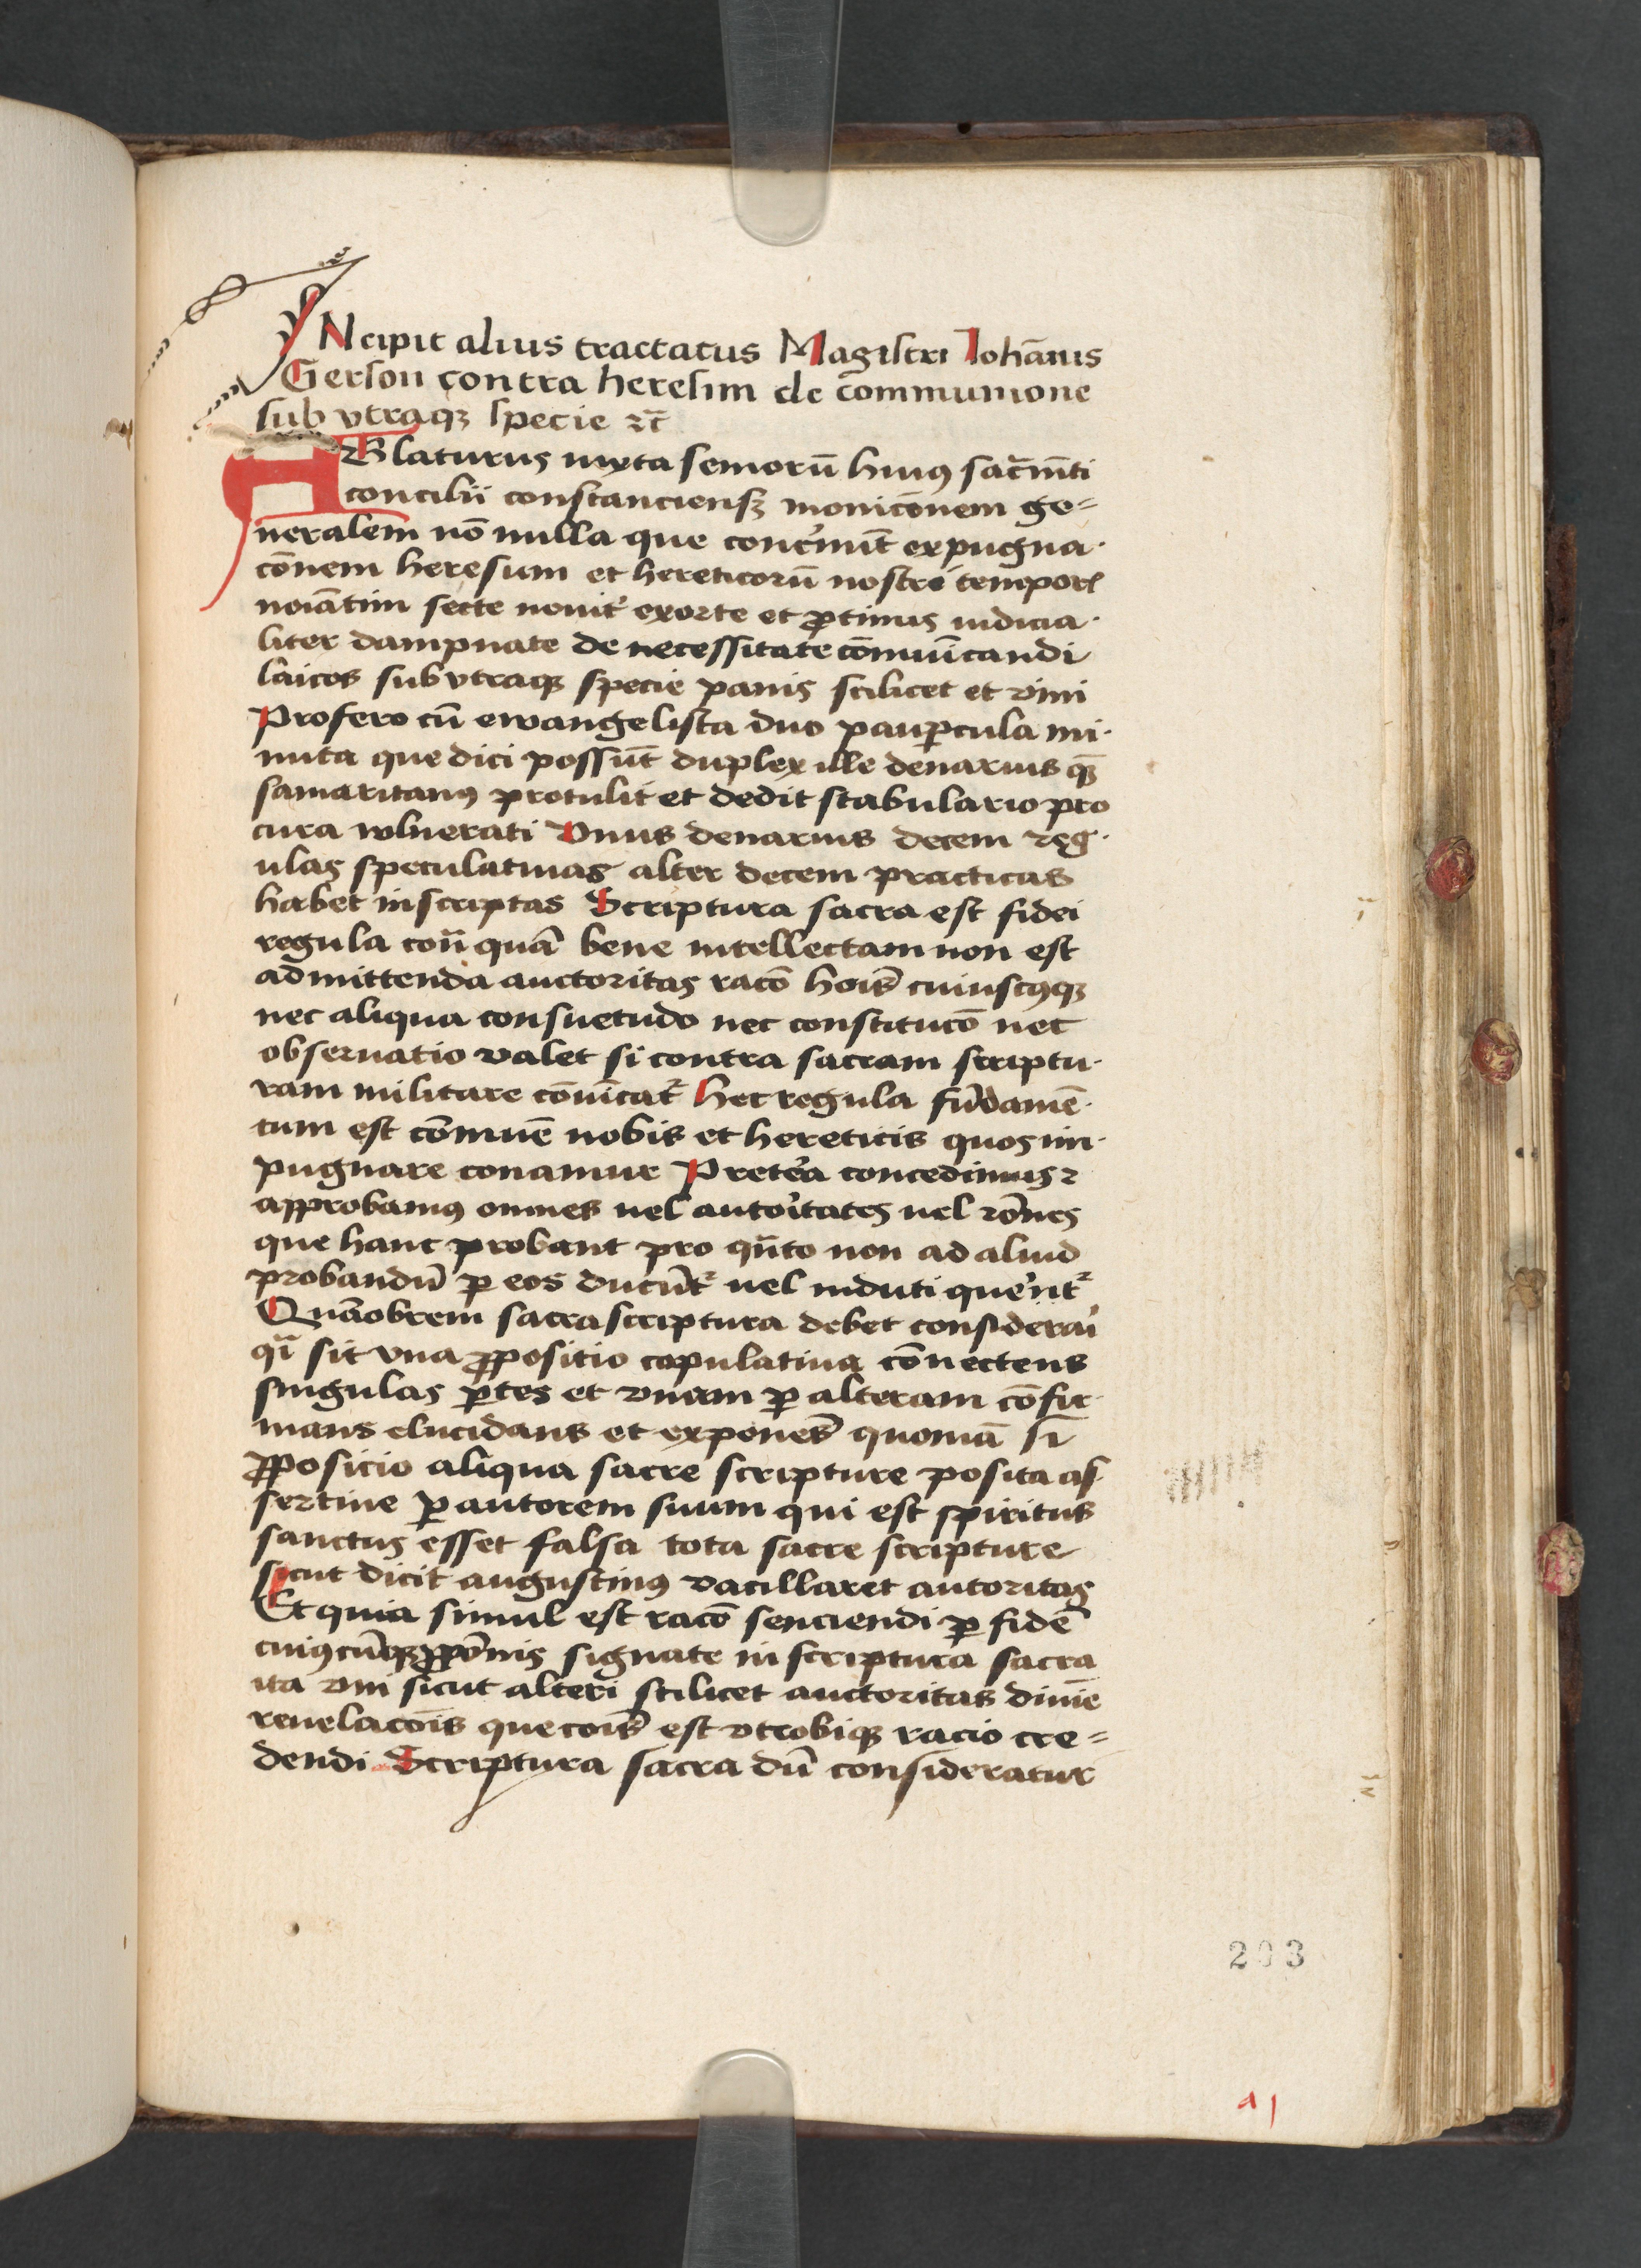 YNcipit alius tractatus Magistri Iohānis
Gerson contra heresim de communione
sub vtraqꝫ specie ⁊c̄
ABlaturus iuxta semorū huiꝰ sac̄mēti
concilii constanciensꝫ monicōnem ge⸗
neralem nō nulla que concernūt expugna·
cōnem heresum et hereticorū nostri tempor̄
noīatim secte nouit̉ exorte et ꝓtinus iudicia·
liter dampnate de necessitate cōmuīcandi
laicos sub vtraqꝫ specie panis scilicet et vini
Profero cū ewangelista duo pauꝑcula mi·
nuta que dici possūt duplex ille denarius qꝫ̄
samaritanꝰ protulit et dedit stabulario pro
cura wlnerati Vnus denarius decem reg·
ulas speculatiuas alter decem practicas
habet inscriptas Scriptura sacra est fidei
regula con̄ quā bene intellectam non est
admittenda auctoritas racō hoīs cuiuscꝰqꝫ
nec aliqua consuetudo nec constitucō nec
obseruatio valet si contra sacram scriptu·
ram militare cōuīcat᷑ Hec regula fūdamē·
tum est cōmuē nobis et hereticis quos im·
pugnare conamur Pret̉ea concedimus ⁊
approbamꝰ omnes uel autoītates uel rōnes
que hanc probant pro qn̄to non ad aliud
probandū ꝑ eos ducūt᷑ uel induti quer̉nt᷑
Quāobrem sacra scriptura debet consideraỉ
qī sit vna ꝓpositio copulatiua cōnectens
singulas ꝑtes et vnam ꝑ alteram cōfir·
mans elucidans et exponēs quoniā si
ꝓposicio aliqua sacre scripture posita as
sertiue ꝑ autorem suum qui est spiritus
sanctus esset falsa tota sacre scripture
sicut dicit augustinꝰ vacillaret autoritas
Et quia simul est racō senciendi ꝑ fidē
cuiꝰcūqꝫ ꝓpōnis signate in scriptura sacra
ita vni sicut alteri scilicet auctoritas diuīe
reuelacōis que coīs est vtrobiqꝫ racio cre⸗
dendi Scriptura sacra dū consideratur
203
a 1